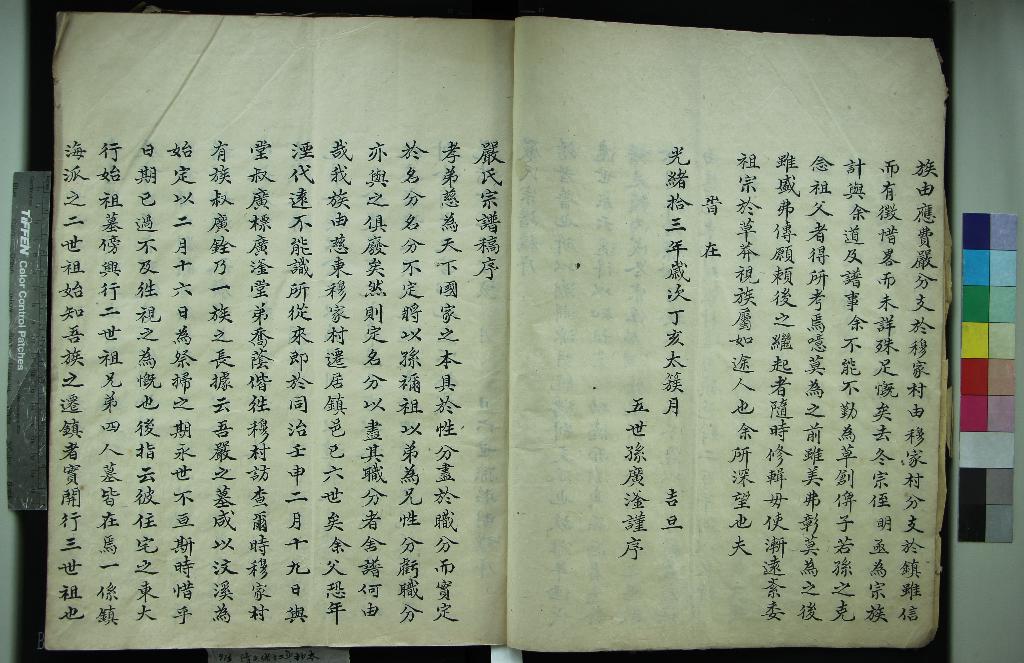 族由應費嚴分支於穆家村由穆家村分支於鎮雖信
而有徵惜畧而未詳殊足慨矣去冬宗侄明亟為宗族
計與余道及譜事余不能不勤為草創俾子若孫之克
念祖父者得所考焉噫莫為之前雖美弗彰莫為之後
雖盛弗傳願賴後之繼起者隨時修輯毋使漸遠紊委
祖宗於草莽視族屬如途人也余所深望也夫
旹在
光緒拾三年歲次丁亥太簇月 吉旦
五世孫廣淦謹序
嚴氏宗譜稿序
孝弟慈為天下國家之本具於性分盡於職分而實定
於名分名分不定將以孫禰祖以弟為兄性分虧職分
亦與之俱廢矣然則定名分以盡其職分者舍譜何由
哉我族由慈東穆家村遷居鎮邑已六世矣余父恐年
湮代遠不能識所從來即於同治壬申二月十九日與
堂叔廣標廣淦堂弟喬蔭偕徃穆村訪查爾時穆家村
有族叔廣銓乃一族之長據云吾嚴之墓咸以汶溪為
始定以二月十六日為祭掃之期永世不亘斯時惜乎
日期已過不及徃視之為慨也後指云彼住宅之東大
行始祖墓傍興行二世祖兄弟四人墓皆在焉一係鎮
海派之二世祖始知吾族之遷鎮者實開行三世祖也